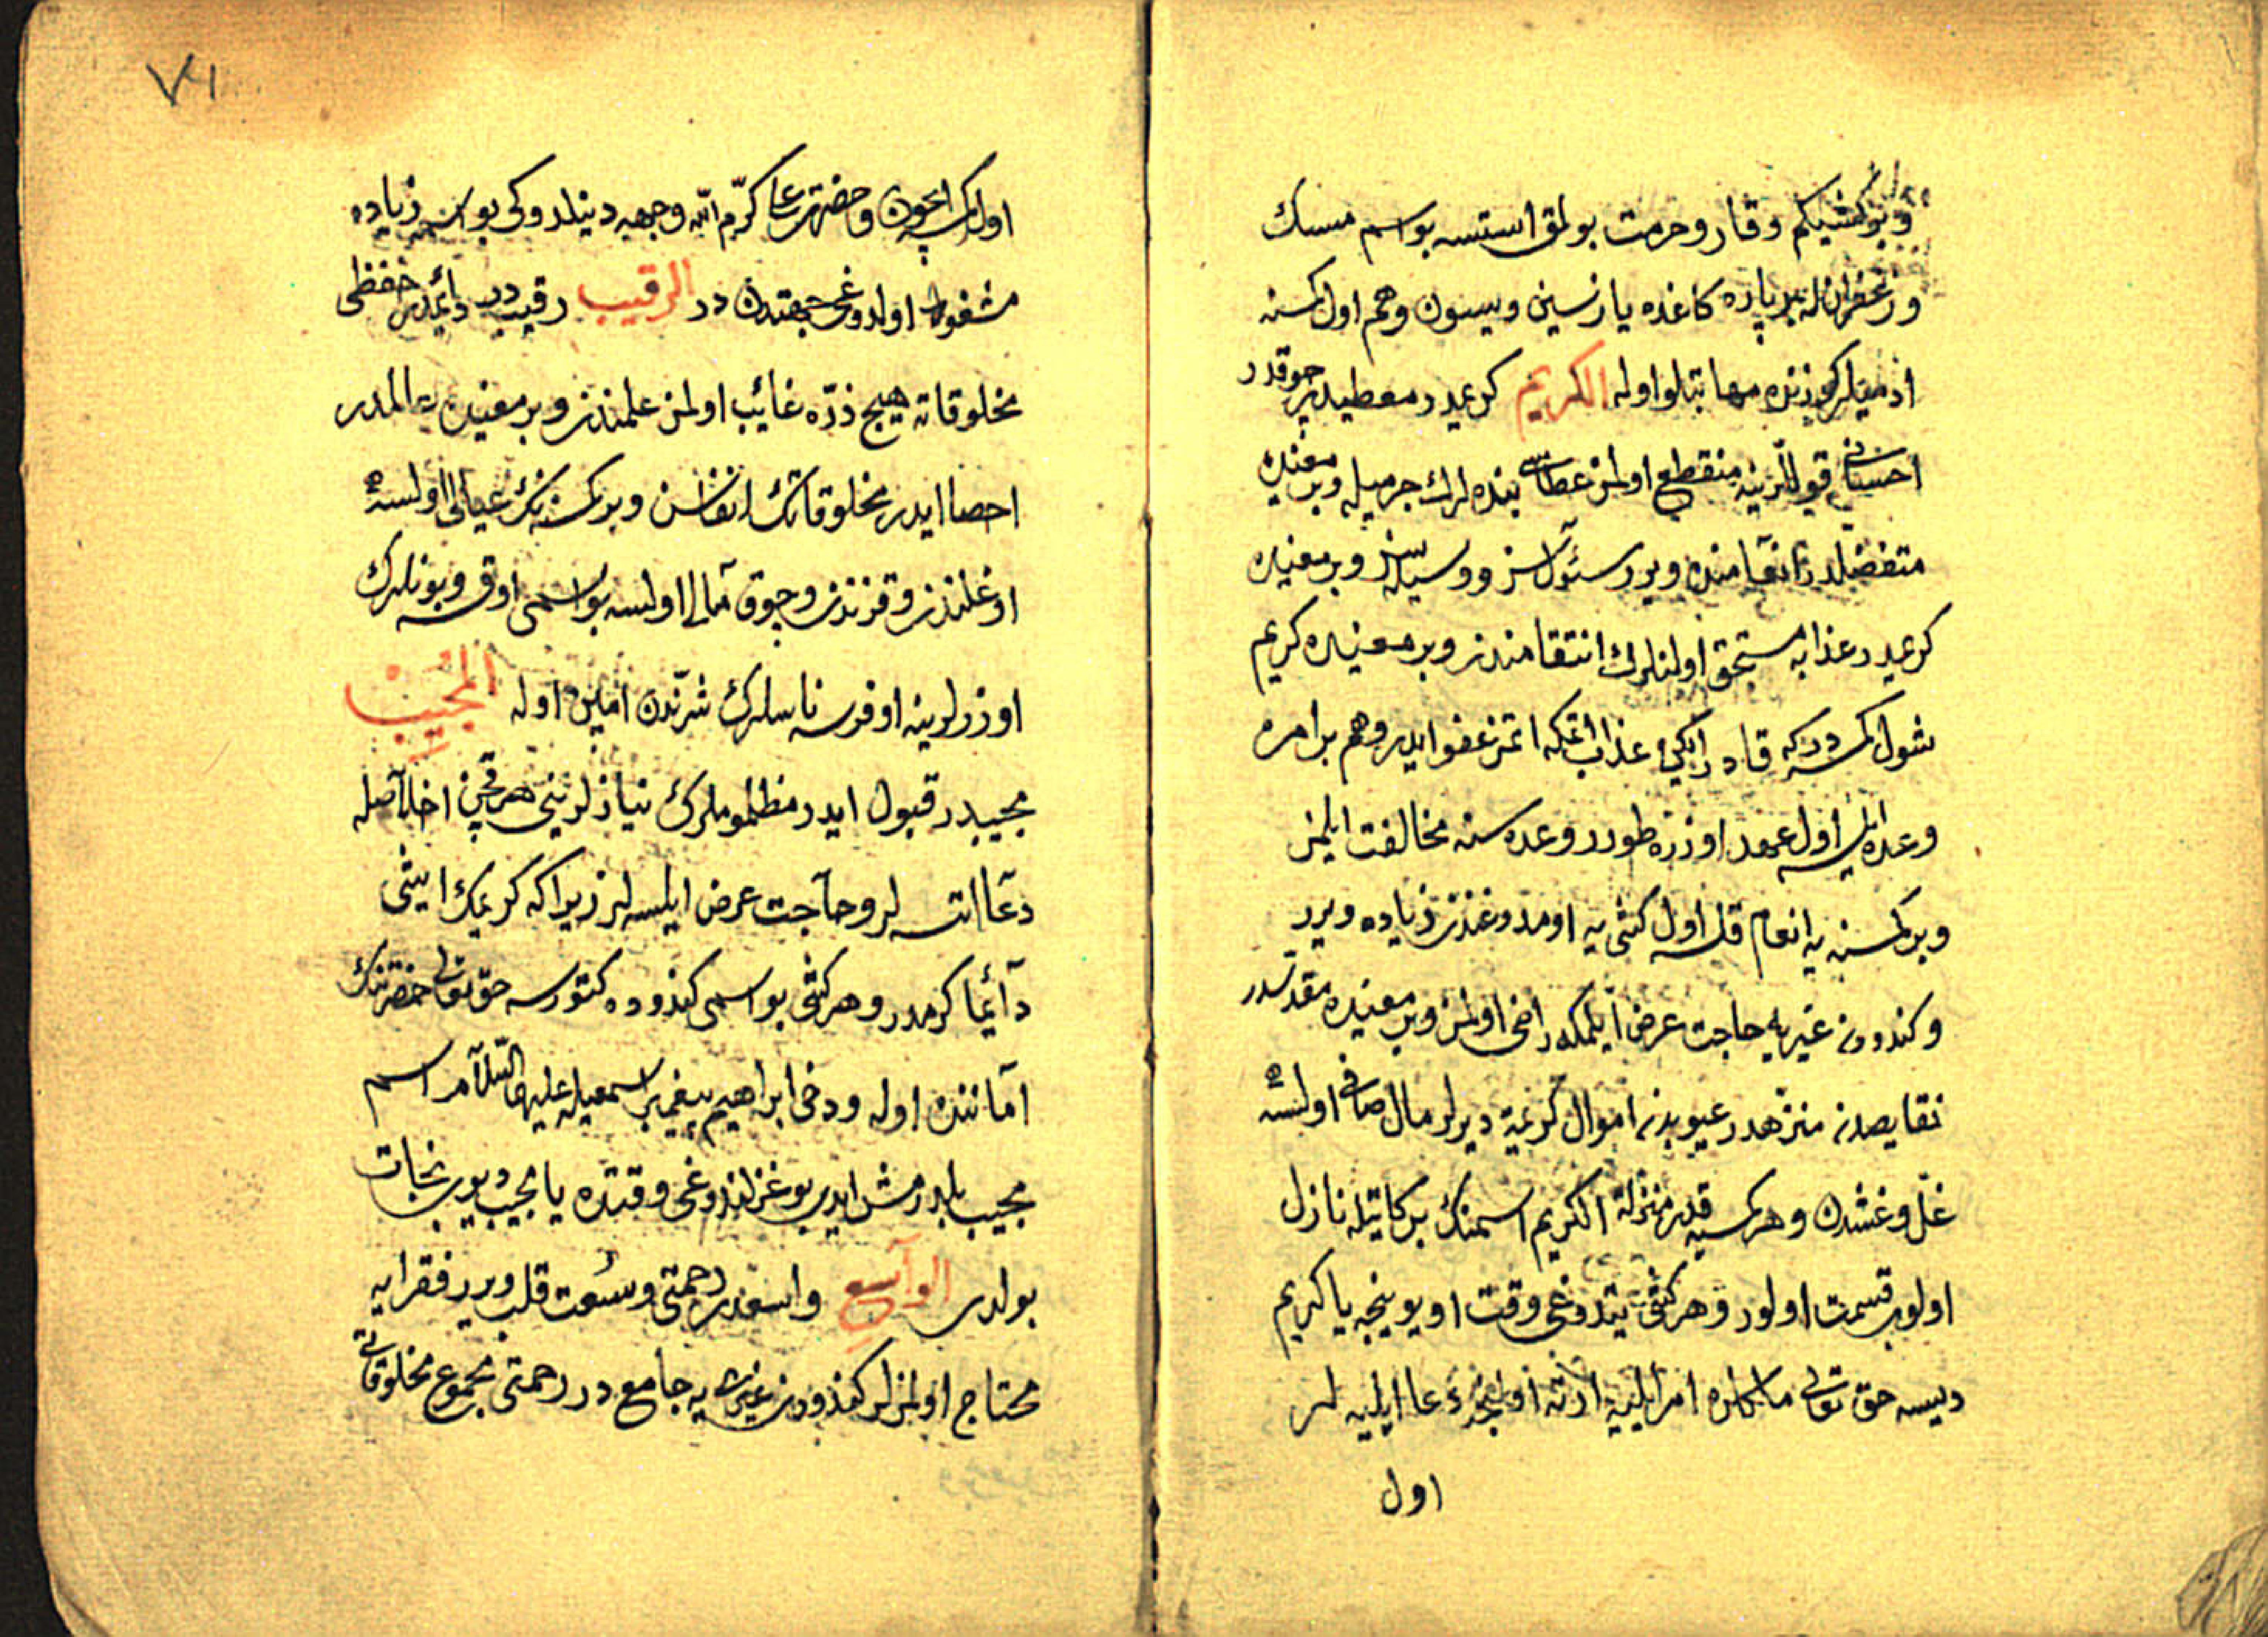 وبر كشيكم وقار وحرمت بولمق استسه بو اسم مسك
وزعفرانله بر پاره كاغده يازسين ويسون وهم اول كسنه
ادميلر كوزنده مهابتلو اوله الكريم كريمدر معطيدر چوقدر
احساني قوللرينه منقطع اولمز عطاسى بنده لرك جرميله وبر معنيده
متفضلدر انعامنده ويرر سئوالسز ووسيله سز وبر معنيده
كريمدر عذابه مستحق اولنلرك انتقامندن وبر معنيده كريم
شول كمسه در كه قادر ايكن عذاب اتمكه اتمز عفو ايدر وهم بر امره
وعده ايلسه اول عهد اوزره طورر وعده سنه مخالفت ايلمز
وبر كمسنه يه انعام قلسه اول كشى يه اومدوغندن زياده ويرر
وكندودن غيريه حاجت عرض ايلمكه راضى اولمز وبر معنيده مقدسدر
نقايصدن منزهدر عيوبدن اموال كريمة ديرلر مال صافى اولسه
غل وغشدن وهر كمسيه قدر منزلة الكريم اسمنك بركاتيله نازل
اولوب قسمت اولور وهر كشى يتدوغى وقت اويوينجه يا كريم
ديسه حق تعالى ملكلره امر ايليه ارته اولنجه دعا ايليه لر
اول
اولمك ايچون وحضرت على كرم الله وجهه دينلدوكى بو اسمه زياده
مشغول اولدوغى جهتدن در الرقيب رقيب در دائمدر حفظى
مخلوقاته هيچ ذره غائب اولمز علمندن وبر معنيده المدر
احصا ايدر مخلوقاتك انفاسن وبر كسنه نك عيالى اولسه
اوغلندن وقزندن وچوق مالى اولسه بو اسمى اوقسه وبونلرك
اوزرلرينه اوفرسه ناسلرك شرندن امين اوله المجيب
مجيبدر قبول ايدر مظلوملرك نيازلرينى هر قچن اخلاصله
دعا اتسه لر وحاجت عرض ايلسه لر زيرا كه كريمك ايشى
دائما كرمدر وهر كشى بو اسمى كندوده كتورسه حق تعالى حضرتنك
اماننده اوله ودخى ابراهيم پيغمبر اسمعيله عليهما السلام اسم
مجيب بلدرمش ايدى بوغزلندوغى وقتده يا مجيب ديوب نجات
بولدى الواسع واسعدر رحمتى وسعت قلب ويرر فقرايه
محتاج اولمزلر كندودن غيرى يه جامع در رحمتى مجموع مخلوقاتى